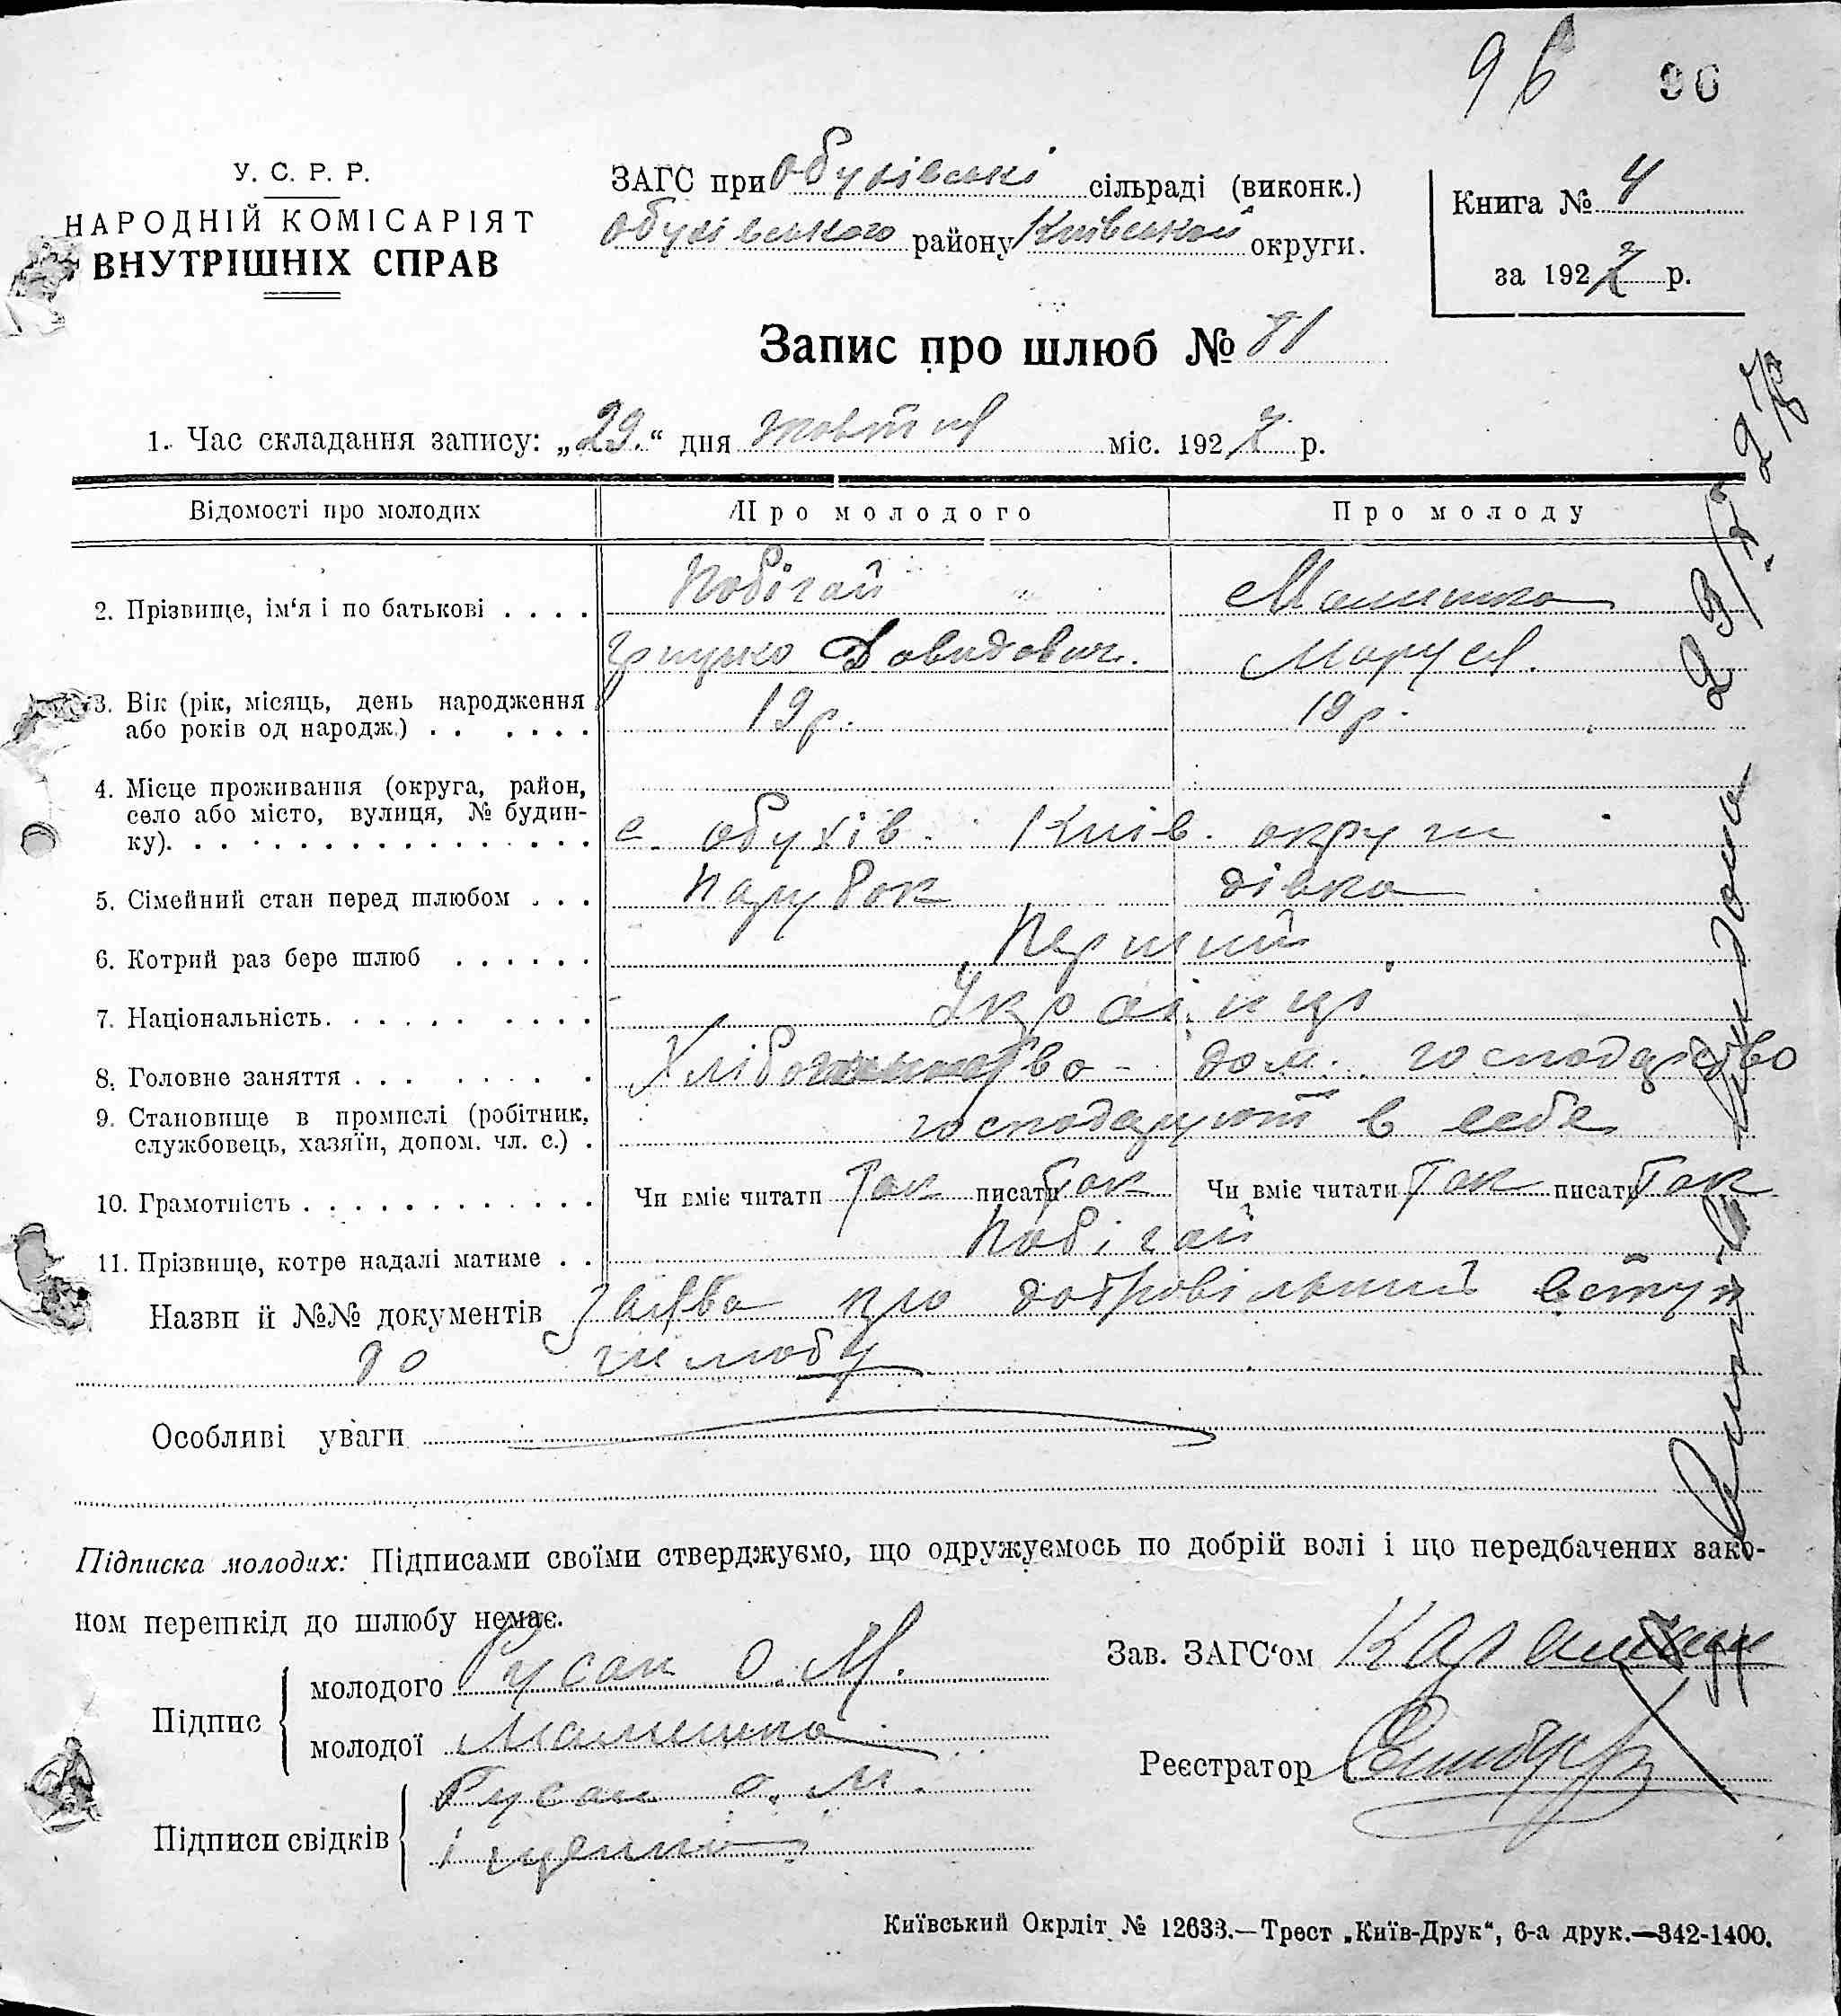 96 96
У. С. Р. Р.
НАРОДНІЙ КОМІСАРІЯТ
ВНУТРІШНІХ СПРАВ
ЗАГС при Обухівські сільраді (виконк.)
Обухівського району Київської округи.
Книга № 4
за 1927 р.
Запис про шлюб № 81
1. Час складання запису: „29.“ дня жовтня міс. 1927 р.
Відомості про молодих Про молодого Про молоду
2. Прізвище, ім‘я і по батькові . . . . Побігай Малишко
Грицько Давидович. Маруся.
3. Вік (рік, місяць, день народження
або років од народж.) . . . . . . 19 р. 19 р.
4. Місце проживання (округа, район,
село або місто, вулиця, № будин-
ку). . . . . . . . . . . . . . . . . с. Обухів. Київ. округи
5. Сімейний стан перед шлюбом . . . Парубок дівка
6. Котрий раз бере шлюб . . . . . . Перший
7. Національність. . . . . . . . . . Українці
8. Головне заняття . . . . . . . . Хлібо дом. господарство
9. Становище в промислі (робітник,
службовець, хазяїн, допом. чл. с.) . господарюють в себе
10. Грамотність . . . . . . . . . . . . . Чи вміє читати Так писати Так Чи вміє читати Так писати Так
11. Прізвище, котре надалі матиме . . Побігай
Назви й №№ документів Заява про добровільний вступ
до шлюбу
Особливі уваги
Підписка молодих: Підписами своїми стверджуємо, що одружуємось по добрій волі і що передбачених зако-
ном перешкід до шлюбу немає.
Підпис
молодого Русан О. М.
молодої Малишко
Підписи свідків
Русан О. М.
Зав. ЗАГС‘ом
Реєстратор
Київський Окрліт № 12633.—Трест „Київ-Друк“, 6-а друк.—342-1400.